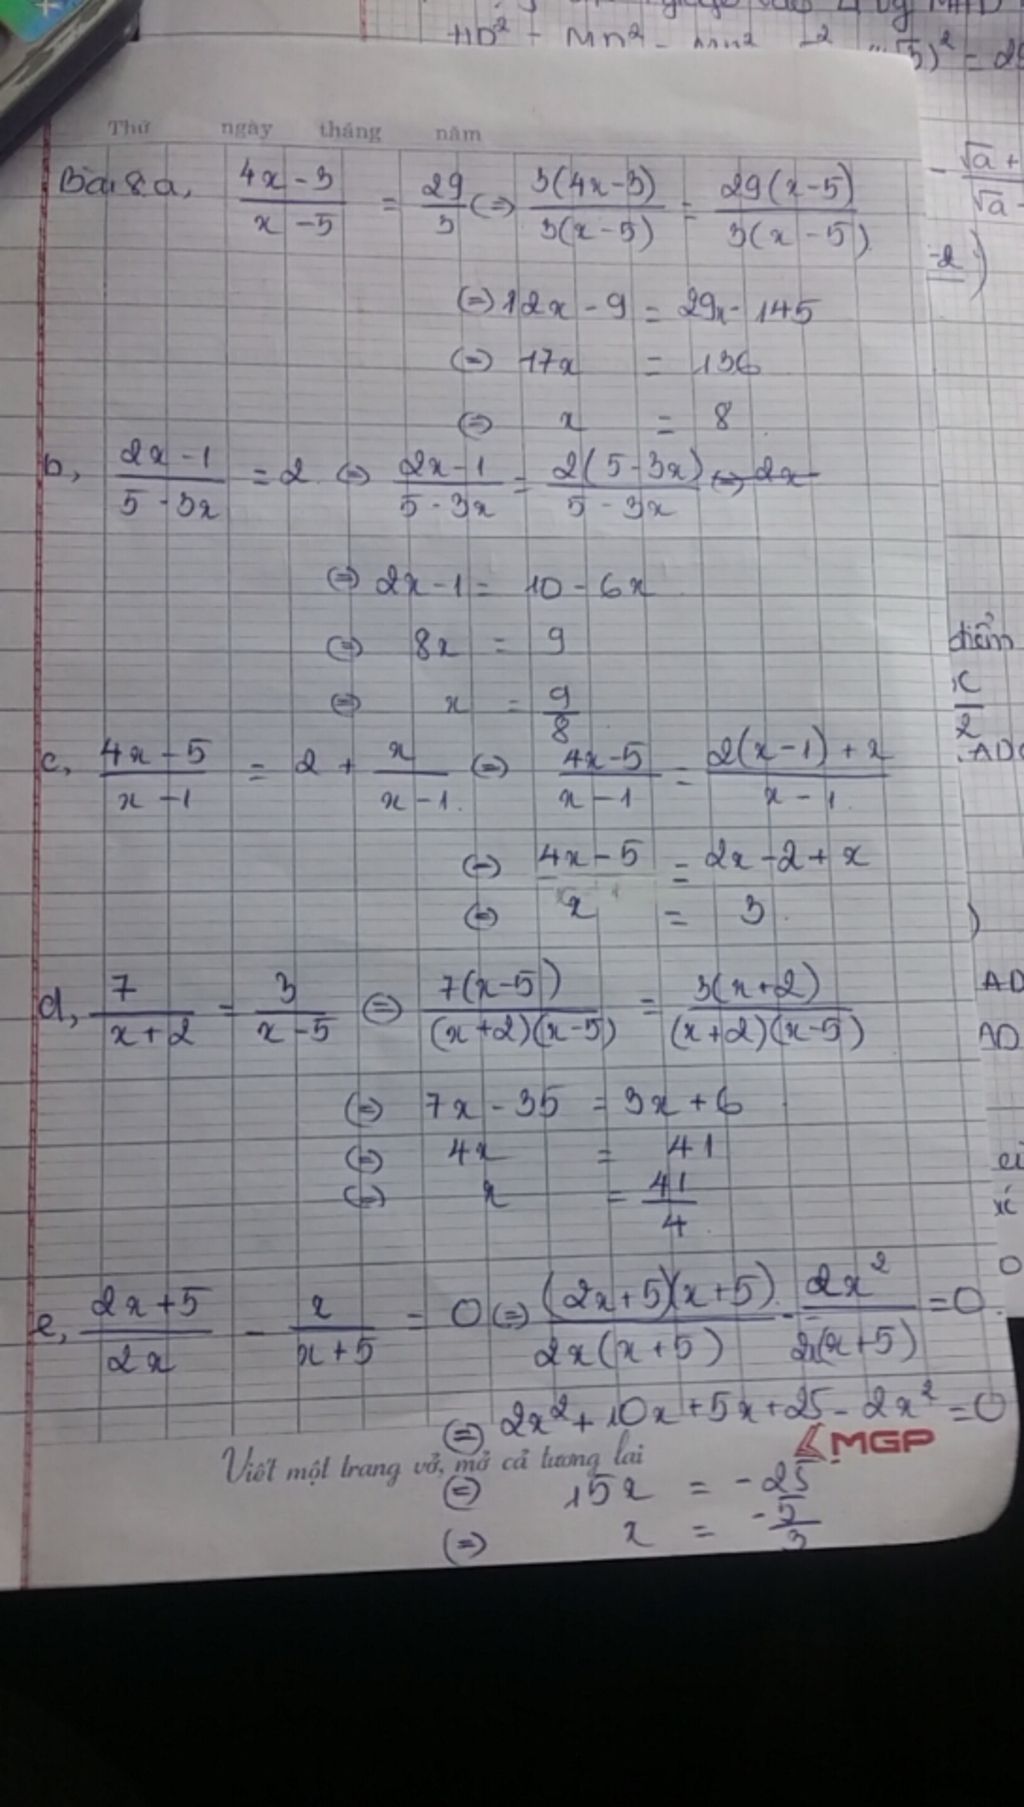 HD² - Mn² - ² ² (√5)² = 25
Thứ ngày tháng năm
Bài 8 a, (4x - 3)/(x - 5) = 29/3 (=) 3(4x-3)/3(x-5) = 29(x-5)/3(x-5)
(=) 12x - 9 = 29x - 145
(=) 17x = 136
(=) x = 8
b, (2x - 1)/(5 - 3x) = 2 (=) (2x-1)/(5-3x) = 2(5-3x)/(5-3x) (=) 2x
(=) 2x - 1 = 10 - 6x
(=) 8x = 9
(=) x = 9/8
c, (4x - 5)/(x - 1) = 2 + x/(x-1) (=) (4x-5)/(x-1) = (2(x-1)+x)/(x-1)
(=) 4x - 5 = 2x - 2 + x
(=) x = 3
d, 7/(x+2) = 3/(x-5) (=) 7(x-5)/(x+2)(x-5) = 3(x+2)/(x+2)(x-5)
(=) 7x - 35 = 3x + 6
(=) 4x = 41
(=) x = 41/4
e, (2x+5)/2x - x/(x+5) = 0 (=) (2x+5)(x+5)/2x(x+5) - 2x²/2x(x+5) = 0
(=) 2x² + 10x + 5x + 25 - 2x² = 0
Viết một trang vở, mở cả tương lai
MGP
(=) 15x = -25
(=) x = -5/3
√a +
√a -
-2 )
điểm
x/2
AD
)
AD
AD
0